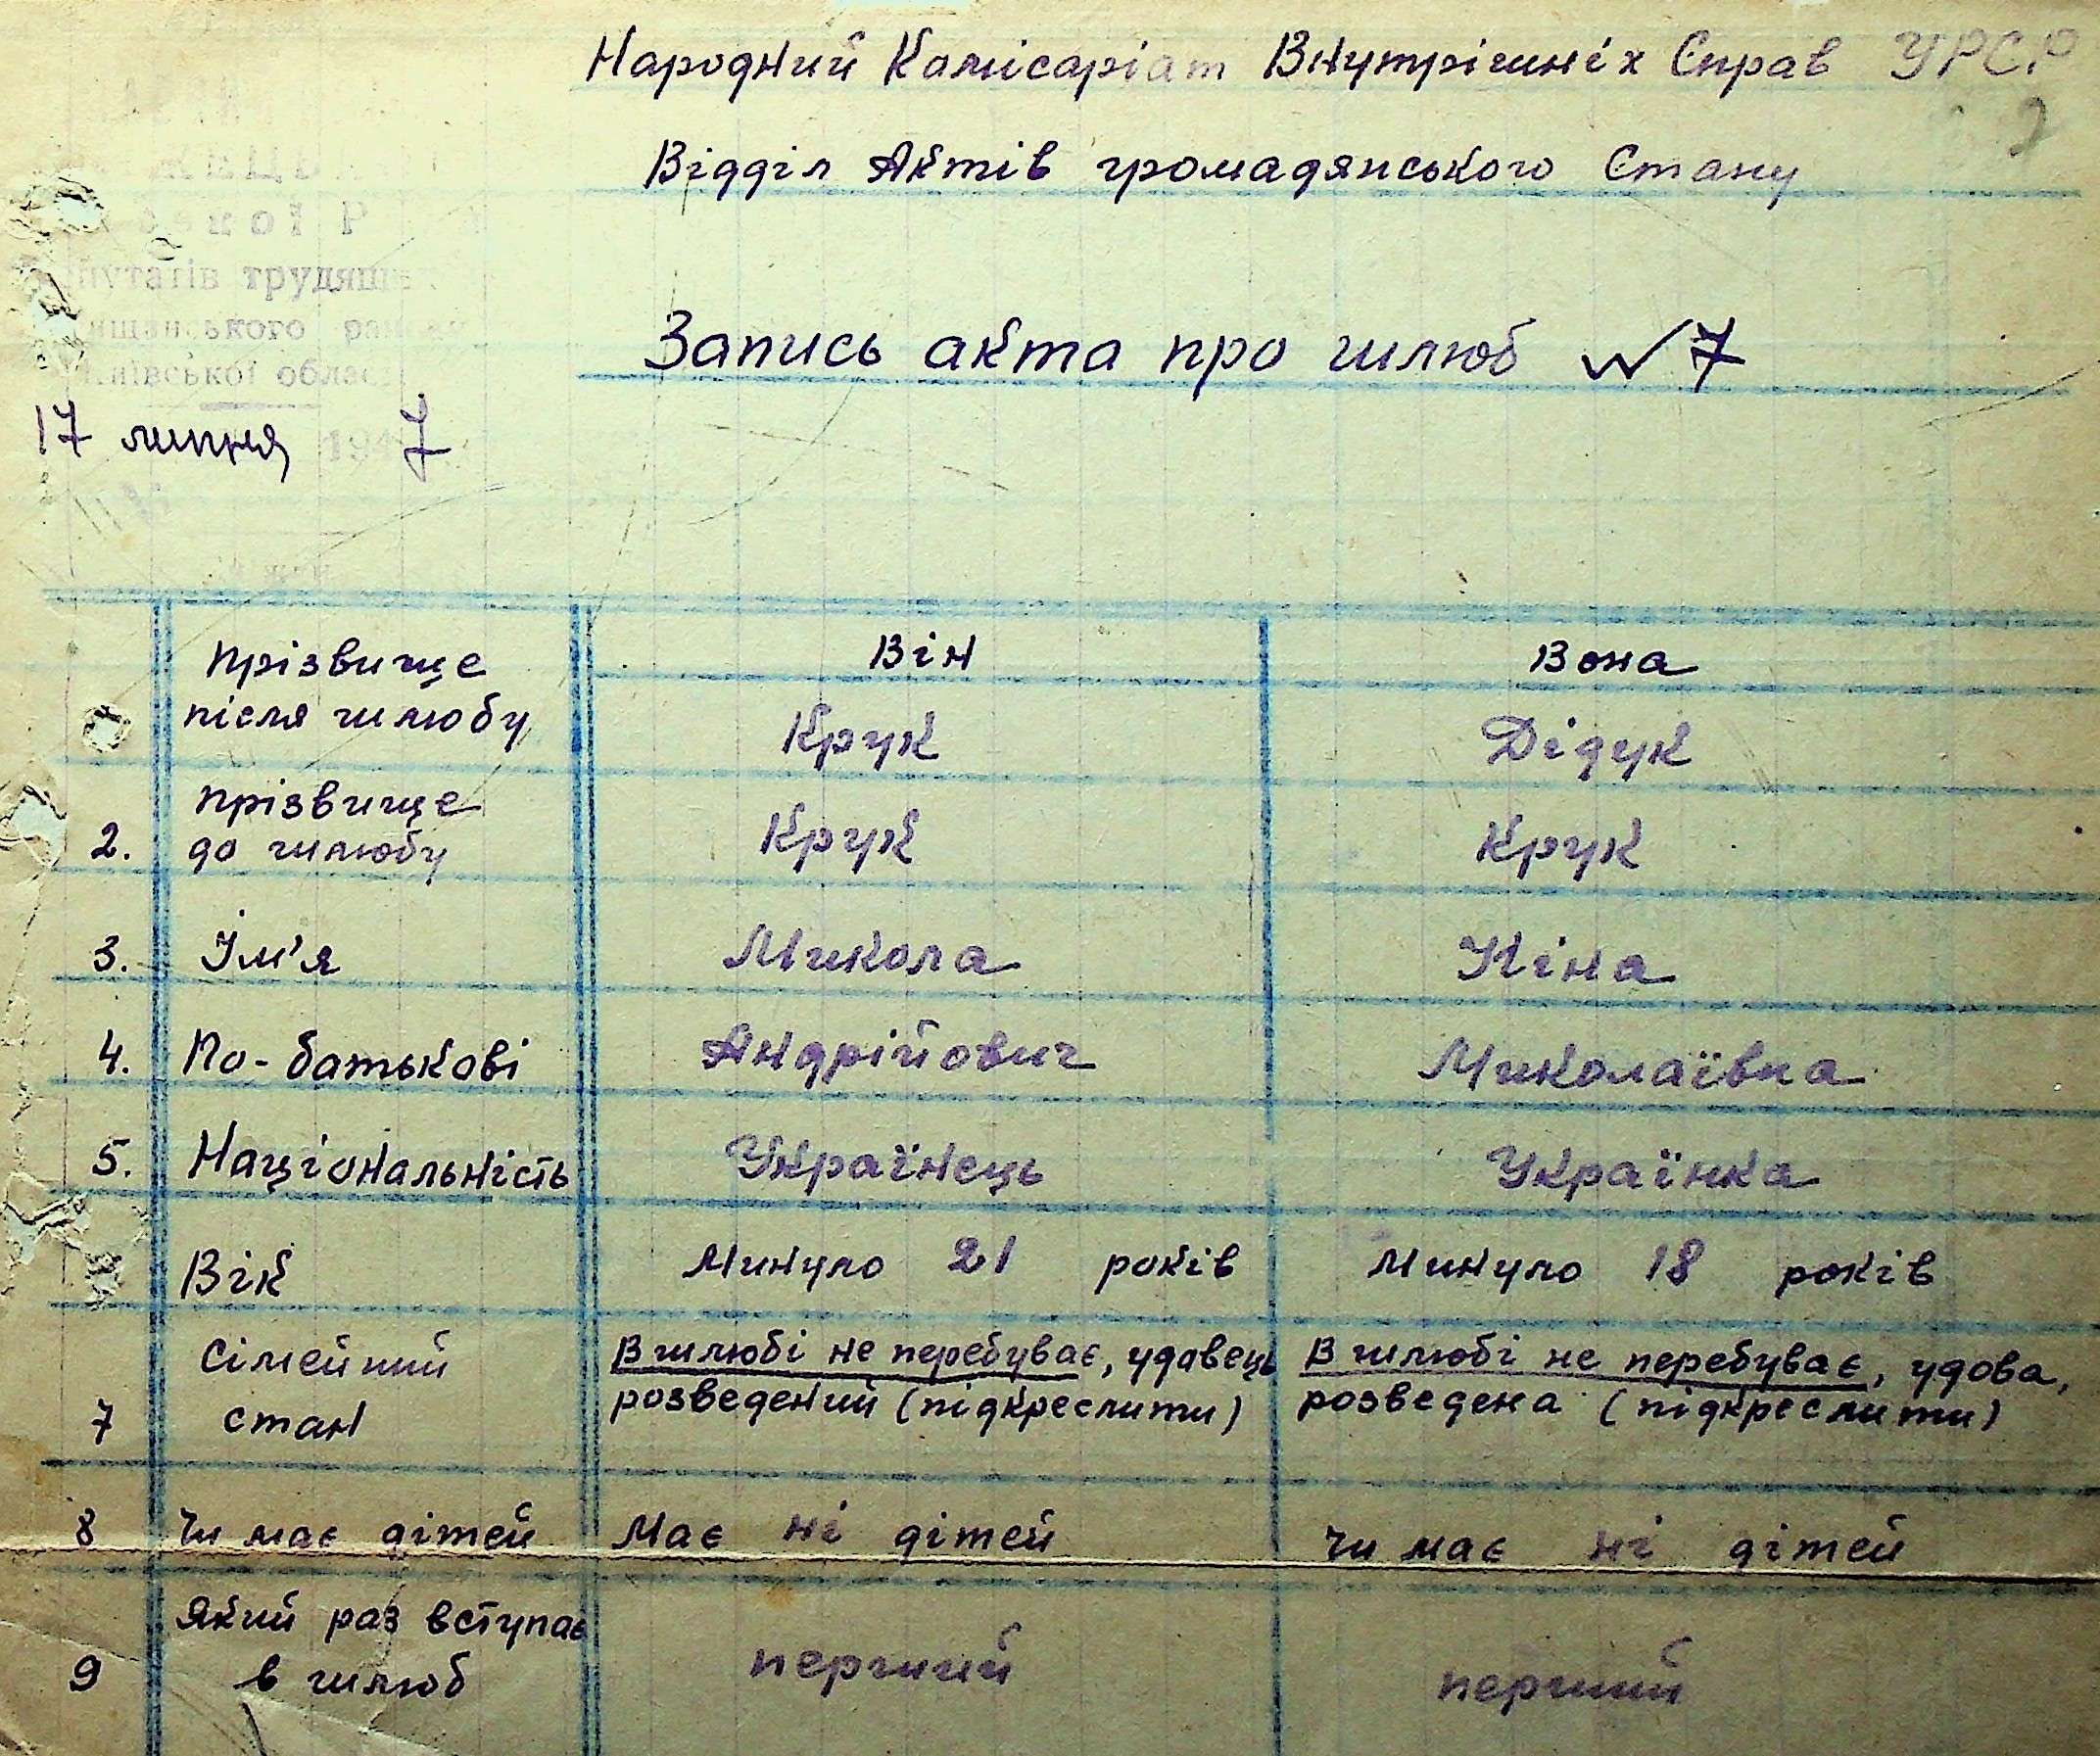 Народний Комісаріат Внутрішніх Справ УРСР
2
Відділ Актів громадянського Стану
трудящих
Запись акта про шлюб № 7
17 липня 194 7
Прізвище після шлюбу
Він
Вона
Крук
Дідук
2. Прізвище до шлюбу
Крук
Крук
3. Ім'я
Микола
Ніна
4. По-батькові
Андрійович
Миколаївна
5. Національність
Українець
Українка
Вік
Минуло 21 років
Минуло 18 років
7 Сімейний стан
В шлюбі не перебуває, удавець
розведений (підкреслити)
В шлюбі не перебуває, удова,
розведена (підкреслити)
8 Чи має дітей
Має ні дітей
Чи має ні дітей
9 Який раз вступає
в шлюб
перший
перший